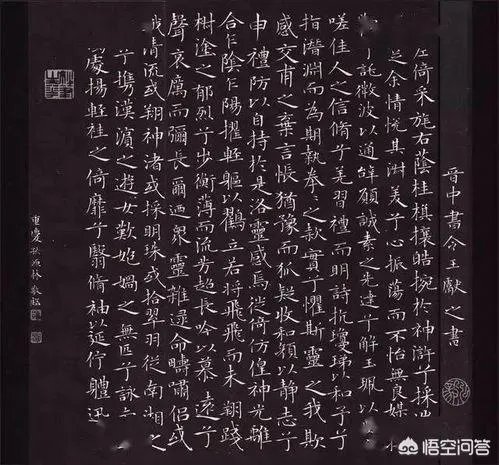 晉中書令王獻之書
倚采旄右蔭桂棋攘皓捥於神滸兮採
芝余情悅其淑美兮心振蕩而不怡無良媒
託微波以通辭願誠素之先達兮解玉珮以
嗟佳人之信脩兮羌習禮而明詩抗瓊珶以和予兮
指潛淵而為期執拳〻之款實兮懼斯靈之我欺
感交甫之棄言悵猶豫而狐疑收和顏以靜志兮
申禮防以自持於是洛靈感焉徙倚仿偟神光離
合乍陰乍陽擢輕軀以鶴立若將飛而未翔踐
樹塗之郁烈兮步衡薄而流芳超長吟以慕遠兮
聲哀厲而彌長爾迺眾靈雜遝命疇嘯侶或
戲清流或翔神渚或採明珠或拾翠羽從南湘之
兮攜漢濱之遊女歎匏媧之無匹兮詠
處揚輕袿之倚靡兮翳脩袖以延佇體迅
重慶 林恭臨
悟空问答